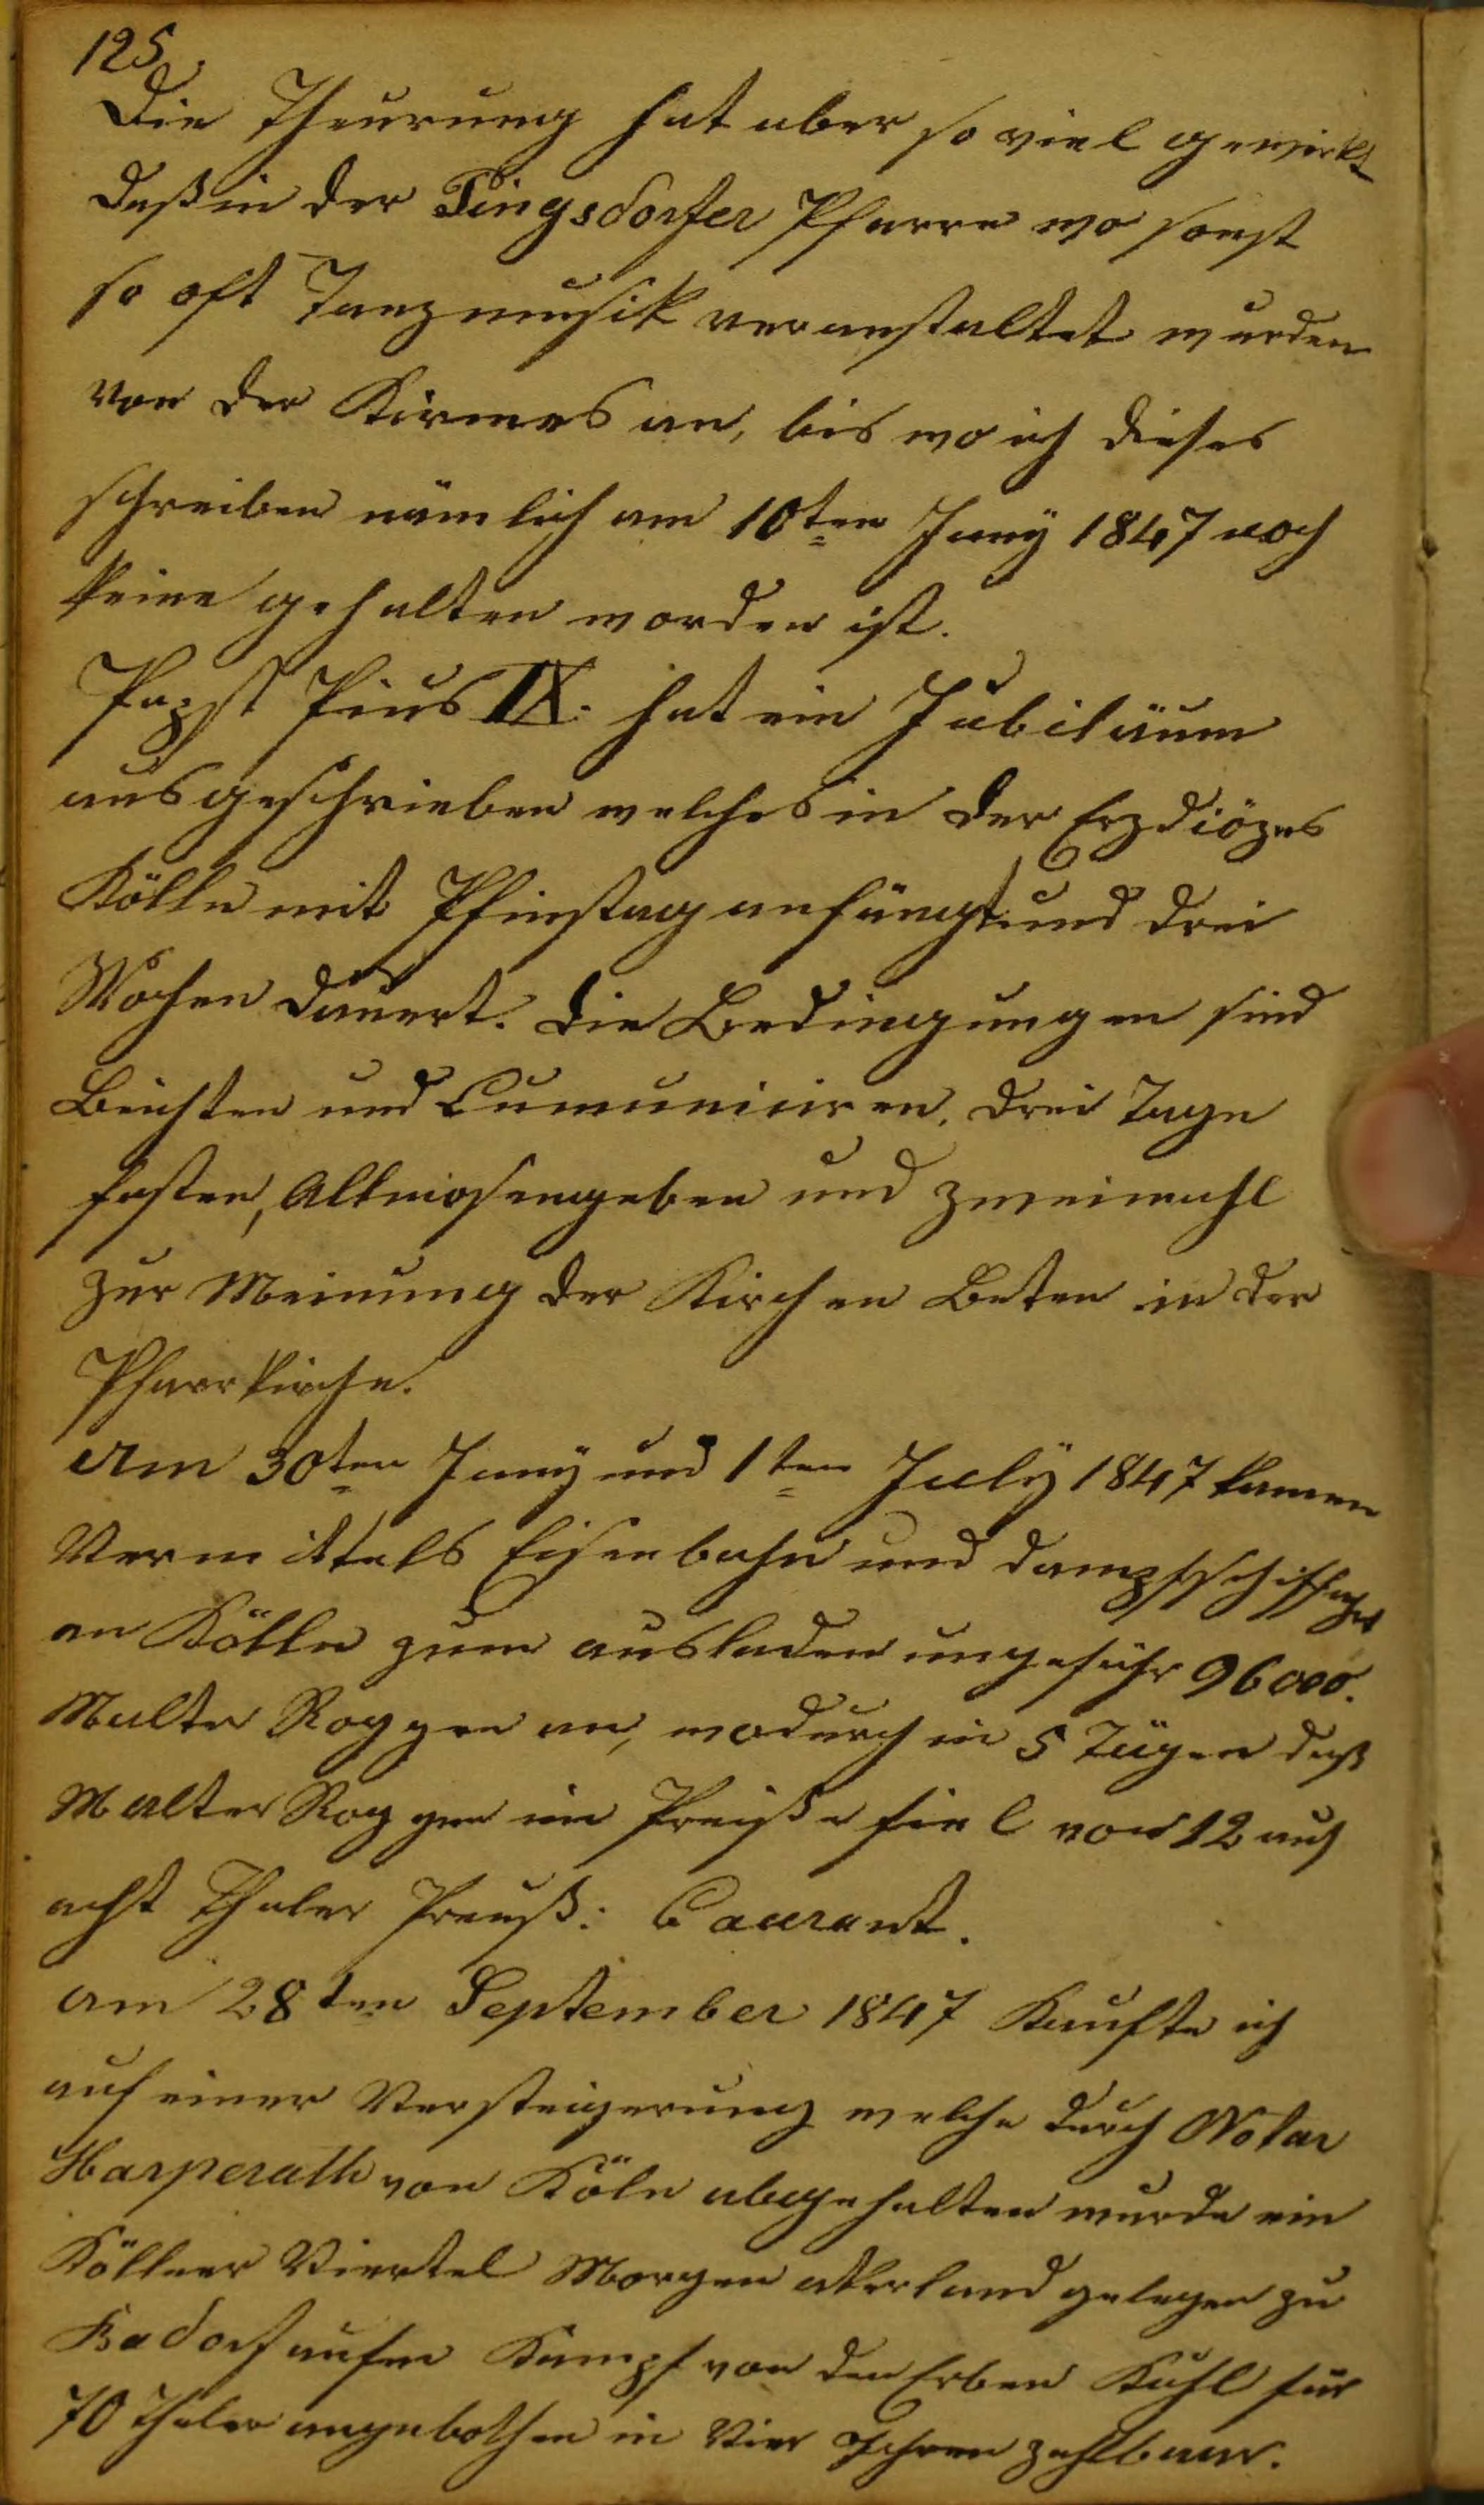 125.
Die Theurung hat aber so viel gewirkt
daß in der Pingsdorfer Pfarre wo sonst
so oft Tanzmusik veranstaltet wurden
von der Kirmes an, bis wo ich dieses
schreiben nämlich am 10ten Juny 1847 noch
keine gehalten worden ist.
Papst Pius IX. hat ein Jubiläum
ausgeschrieben welches in der Erzdiözes
Kölln mit Pfinstag anfängt und drei
Wochen dauert. Die Bedingungen sind
Beichten und Cumuniciren, drei Tage
fasten, Allmosengeben und zweimahl
zur Meinung der Kirchen Beten in der
Pfarrkirche.
Am 30ten Juny und 1ten July 1847 kamen
Vermittels Eisenbahn und dampfschiffahrt
an Kölln zum ausladen ungefähr 96000.
Malter Roggen an, wodurch in 5 Tägen daß
Malter Roggen im Preiße fiel von 12 auf
acht Thaler Preuß: Caurant.
am 28ten September 1847 Kaufte ich
auf einer Versteigerung welche durch Notar
Harperath von Köln abgehalten wurde ein
Köllner Viertel Morgen akerland gelegen zu
Badorf aufm Kampf von den Erben Kuhl für
70 Thaler angebothen in Vier Jahren zahlbaar.